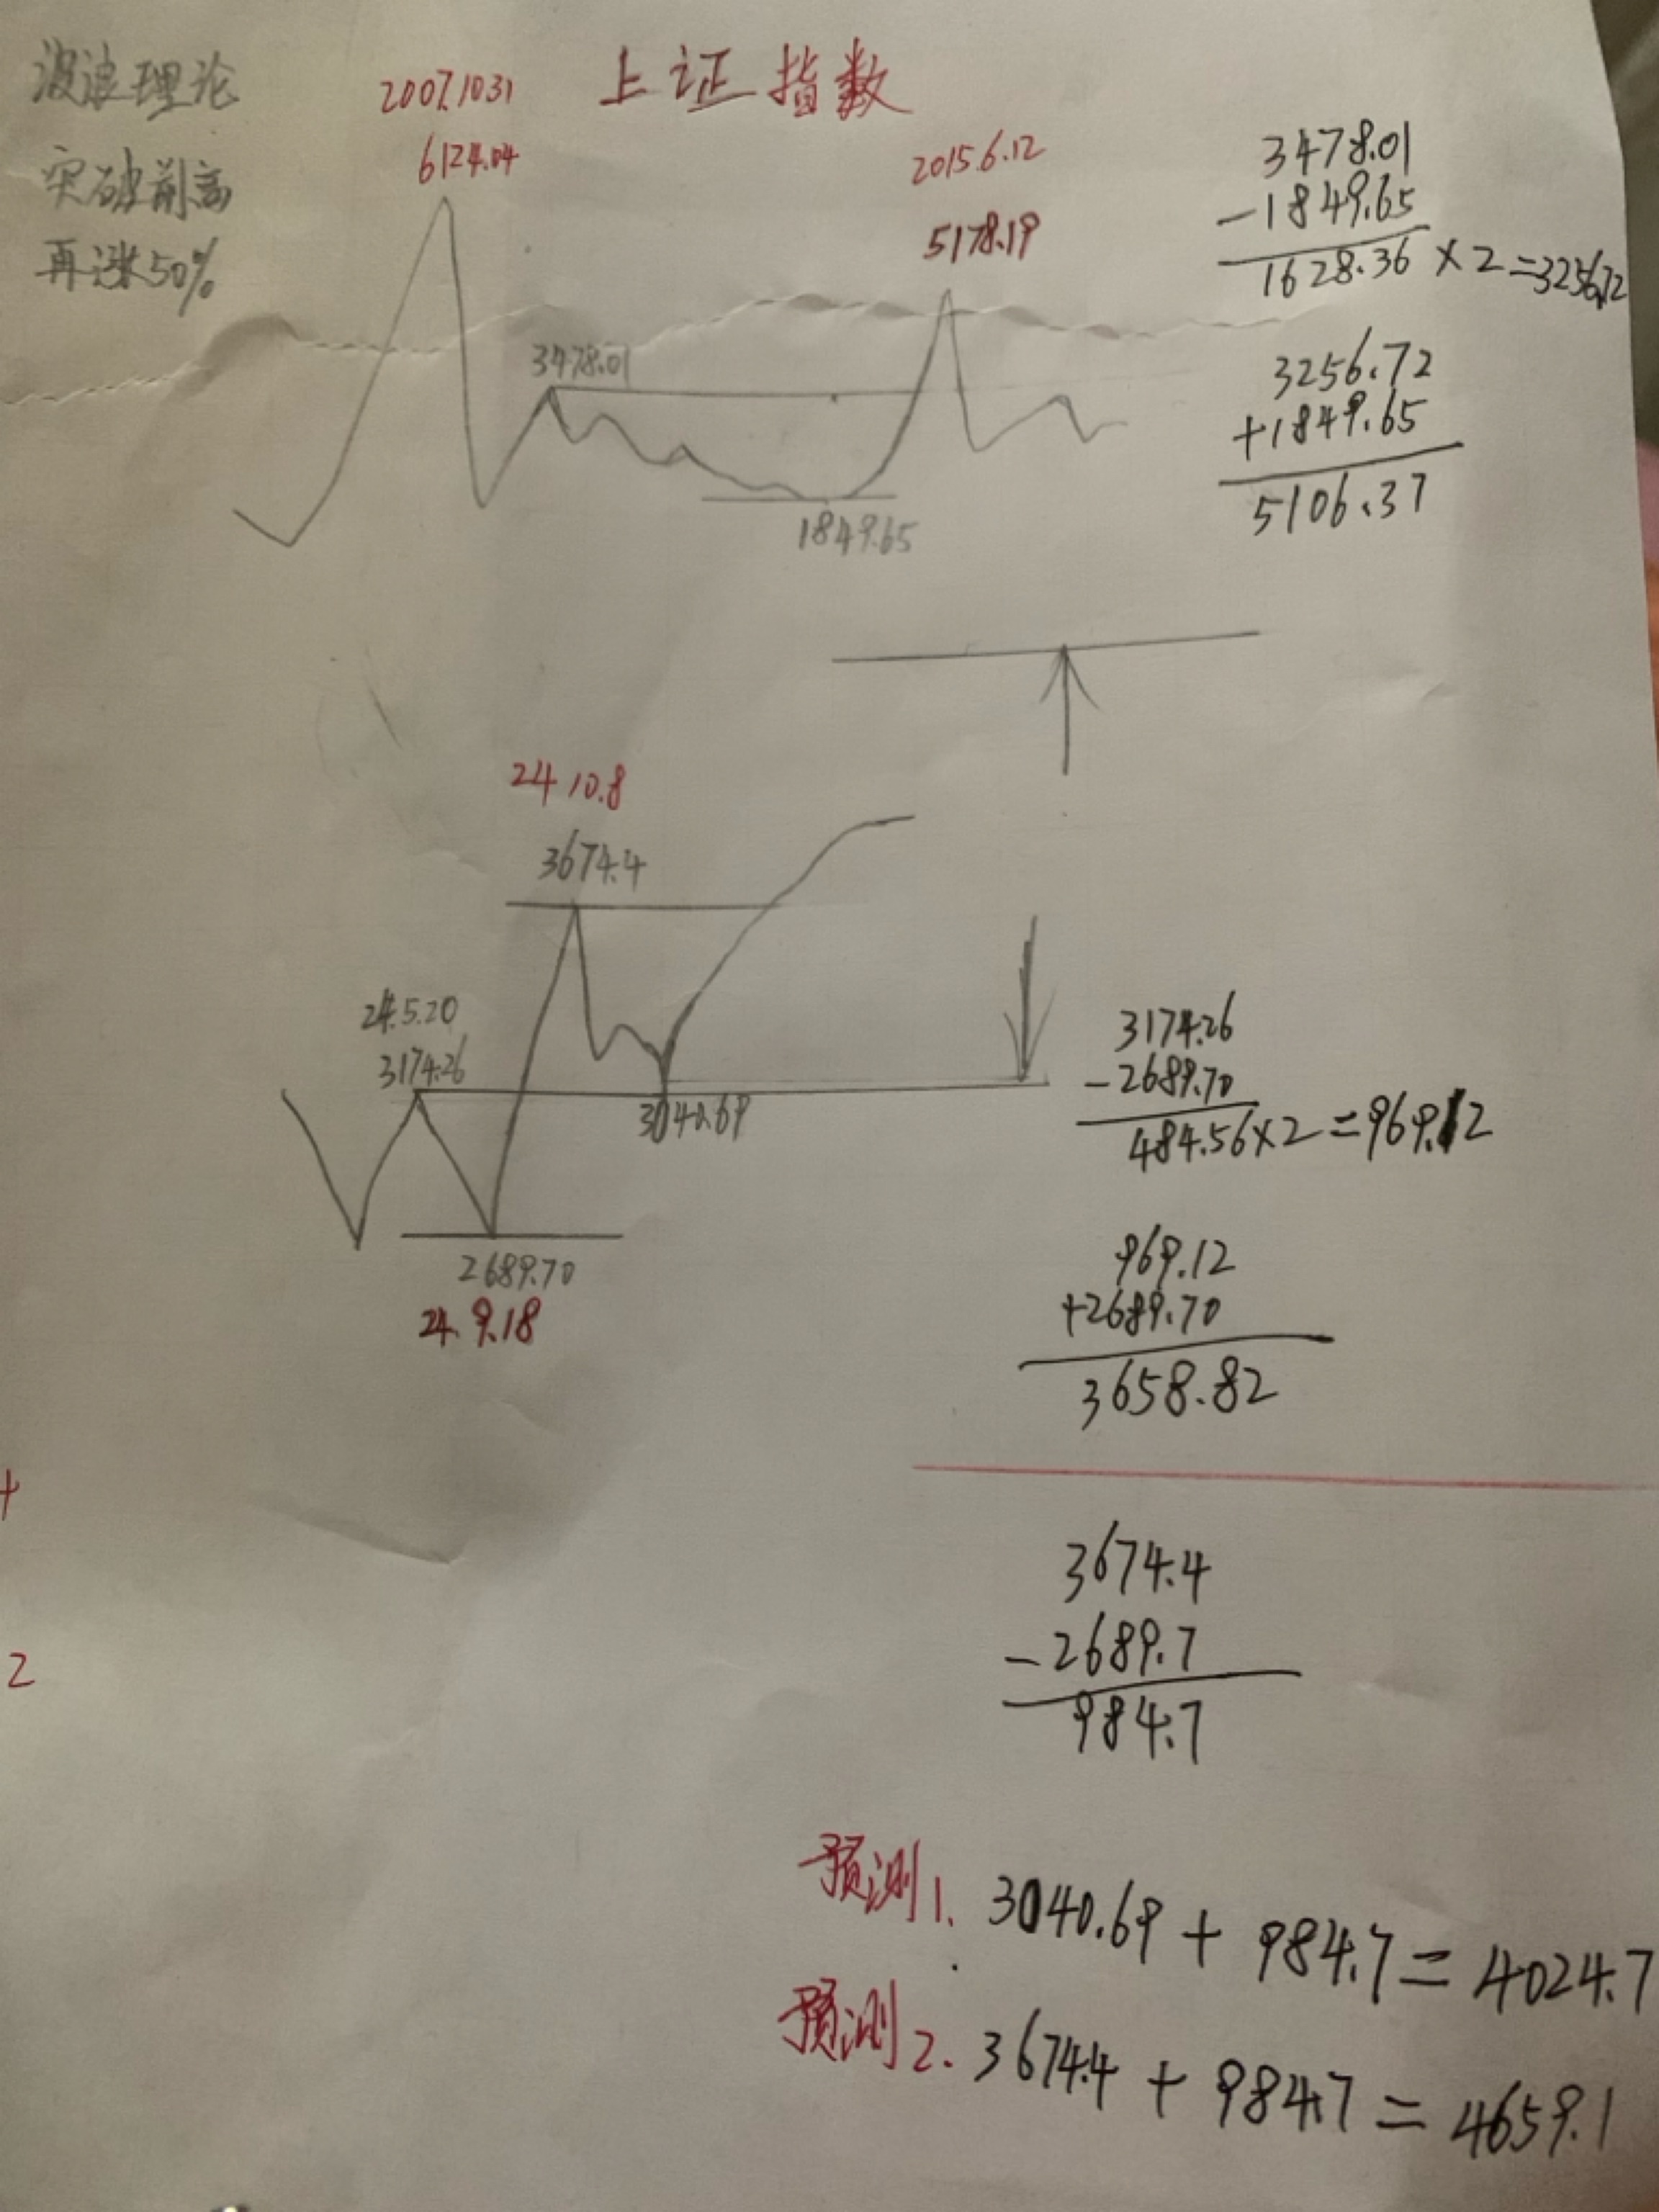 波浪理论
突破前高
再涨50%
上证指数
2007.1031
6124.04
2015.6.12
5178.19
3478.01
1849.65
3478.01
-1849.65
1628.36 × 2 = 3256.72
3256.72
+1849.65
5106.37
24 10.8
3674.4
24.5.20
3174.26
3040.69
2689.70
24. 9.18
3174.26
-2689.70
484.56×2 = 969.12
969.12
+2689.70
3658.82
3674.4
-2689.7
984.7
预测1. 3040.69 + 984.7 = 4024.7
预测2. 3674.4 + 984.7 = 4659.1
2